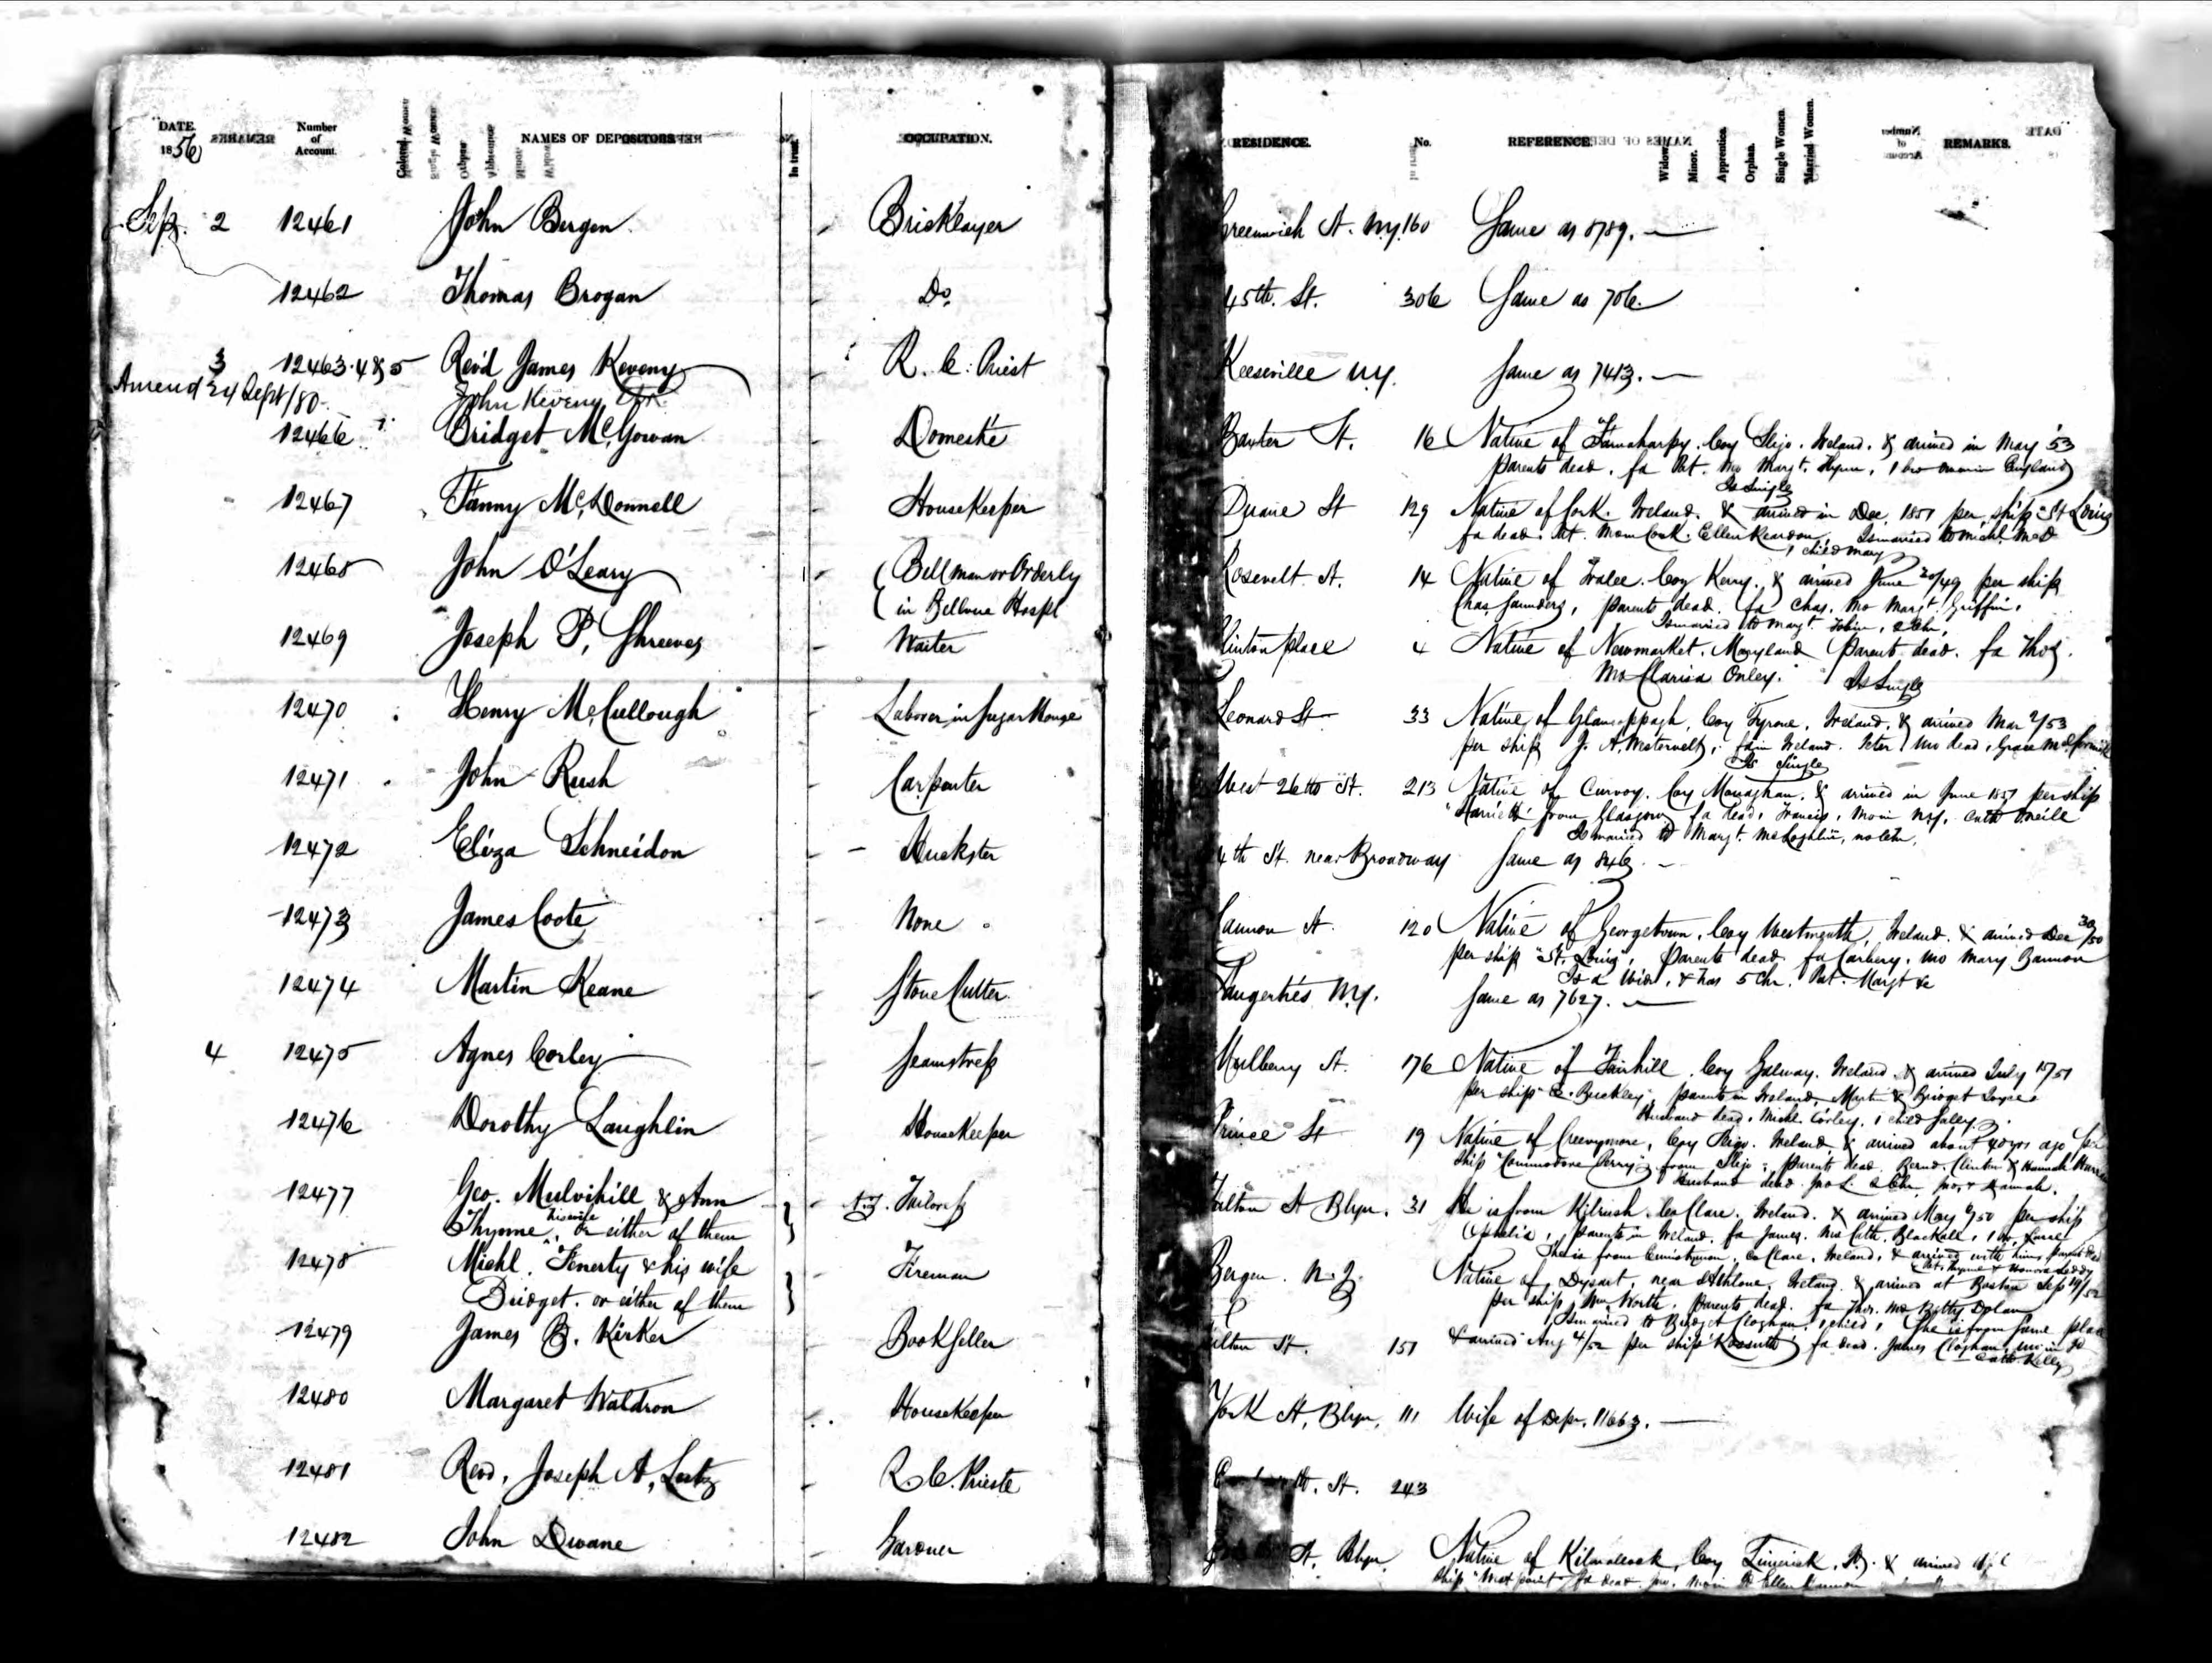 DATE. 1856
Number of Account.
NAMES OF DEPOSITORS
In trust.
OCCUPATION.
RESIDENCE.
No.
REFERENCE.
Widow.
Minor.
Apprentice.
Orphan.
Single Women.
Married Women.
REMARKS.
Sep. 2 12461 John Bergen Bricklayer Greenwich St. N.Y. 160 Same as 8789.
12462 Thomas Brogan Do. 45th. St. 306 Same as 706.
3 12463.4&5 Revd James Keveny R. C. Priest Keeseville N.Y. Same as 7413.
Amend 24 Sept/80 John Keveny
12466 Bridget McGowan Domestic Baxter St. 16 Native of Coy Sligo. Ireland. & arrived in May '53
parents dead. fa Pat. mo Margt. 1 bro in England
Is Single
12467 Fanny McDonnell Housekeeper Duane St 129 Native of Cork. Ireland. & arrived in Dec. 1851 per ship "St Louis
fa dead. Mo in Cork. Ellen Reardon. Is married to Michl. McD
1 child Mary
12468 John O'Leary Bellman or Orderly Rosevelt St. 14 Native of Tralee. Coy Kerry. & arrived June 20/49 per ship
in Bellevue Hospl Chas Saunders, parents dead. fa Chas. mo Margt. Griffin.
Is married to Margt. Tobin, 2 Chn.
12469 Joseph P. Shreeves Waiter Clinton place 4 Native of Newmarket. Maryland Parents dead. fa Thos.
Mo Clarisa Onley. Is Single
12470 Henry McCullough Laborer in Sugar House Leonard St 33 Native of Coy Tyrone. Ireland. & arrived Mar 2/53
per ship J. A. Westervelt, fa in Ireland. Peter mo dead, Grace McCormick
Is Single
12471 John Rush Carpenter West 26th St. 213 Native of Curvoy. Coy Monaghan. & arrived in June 1851 per ship
"Harriett" from Glasgow fa dead. Francis. Mo in N.Y. Cath Oneill
Is married to Margt. McLoghlin, no chn.
12472 Eliza Schneidon Huckster 4th St. near Broadway Same as 846.
12473 James Coote None Cannon St. 120 Native of Georgetown. Coy Westmeath, Ireland. & arrived Dec 30/50
per ship "St. Louis", Parents dead. fa Carbery. mo Mary Bannon
Is a Widr. & has 5 Chn. Pat. Margt &c
12474 Martin Keane Stone Cutter Saugerties N.Y. Same as 7627.
4 12475 Agnes Corley Seamstress Mulberry St. 176 Native of Fairhill. Coy Galway. Ireland. & arrived July 1851
per ship "E. Buckley", parents in Ireland, Martin & Bridget Joyce
Husband dead. Michl. Corley. 1 child Salley.
12476 Dorothy Laughlin Housekeeper Prince St 19 Native of Creevymore, Coy Sligo. Ireland, & arrived about 40 yrs ago per
ship "Commodore Perry" from Sligo, parents dead. Bernd. Clinton & Hannah
Husband dead. Jno L. 2 Chn Jno. & Hannah.
12477 Geo. Mulvihill & Ann Tailoress Fulton St Blyn. 31 He is from Kilrush. Co Clare. Ireland. & arrived May 6/50 per ship
Thynne his wife, or either of them Ophelia, parents in Ireland. fa James. Mo Cath. Blackall,
She is from Co Clare. Ireland, & arrived with him,
12478 Michl. Finerty & his wife Fireman Bergen N.J. Native of Dysart, near Athlone. Ireland. & arrived at Boston Sep 19/52
Bridget. or either of them per ship Wm Worth. Parents dead. fa Thos. mo Betty Dolan
Is married to Bridget Cloghan. 1 child, She is from same place
12479 James B. Kirker Bookseller Fulton St. 151 & arrived Aug 4/52 per ship "Kossuth" fa dead. James Cloghan. mo in
Cath Kelly
12480 Margaret Waldron Housekeeper York St, Blyn, 111 Wife of Depr. 11663.
12481 Revd. Joseph A, Lutz R. C. Prieste St. 243
12482 John Dwane Gardner St, Blyn. Native of Kilmallock, Coy Limerick. & arrived
ship "West point" fa dead.